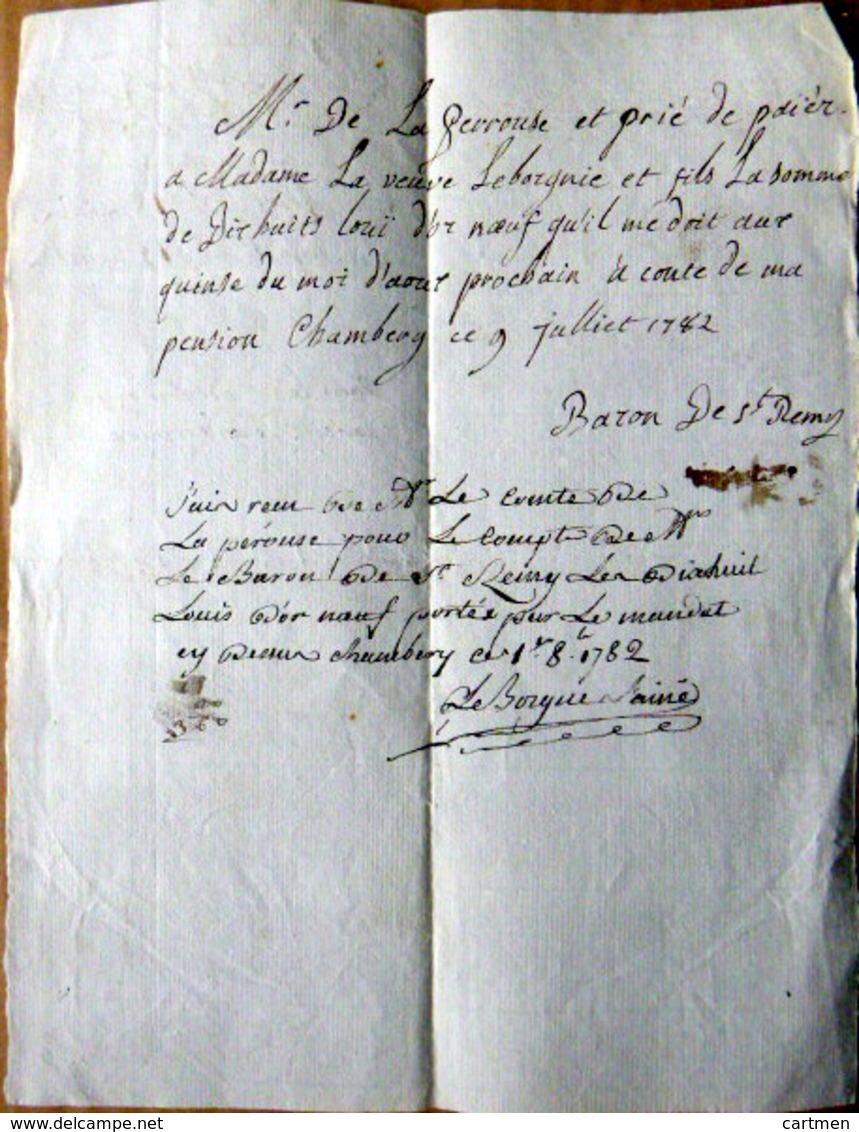 Mr De La Perrouse et prié de païér
a Madame La veuve Leborgnie et fils La somme
de Dix huits louï d'or nœuf qu'il me doit aux
quinse du moi d'aout prochain à conte de ma
pension Chambery ce 9 julliet 1782
Baron De St Remy
J'ais reçu De Mr Le Comte De
La pérouse pour Le Compte De Mr
Le Baron De St Remy Les Dixhuit
Louis D'or nœuf portés par Le mandat
cy Dessus Chambery ce 1r 8.b 1782
Le Borgne L'ainé
cartmen